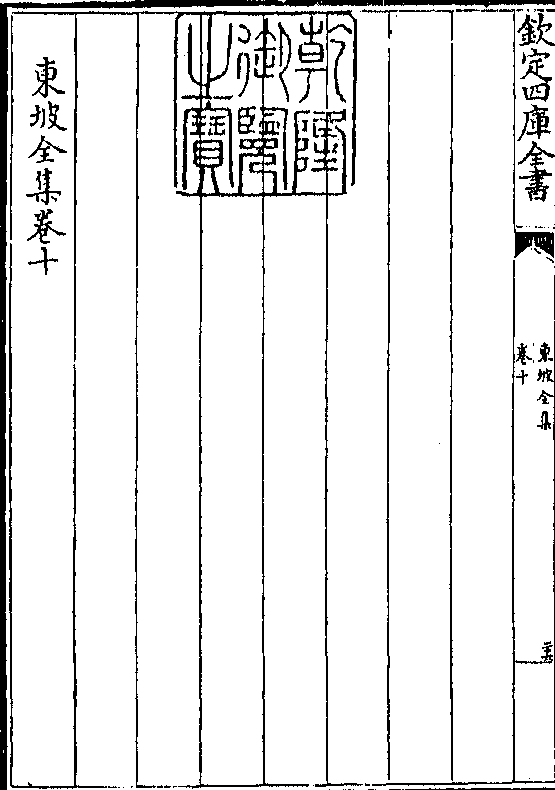 欽定四庫全書
東坡全集
卷十
乾隆
御覽
之寶
東坡全集卷十